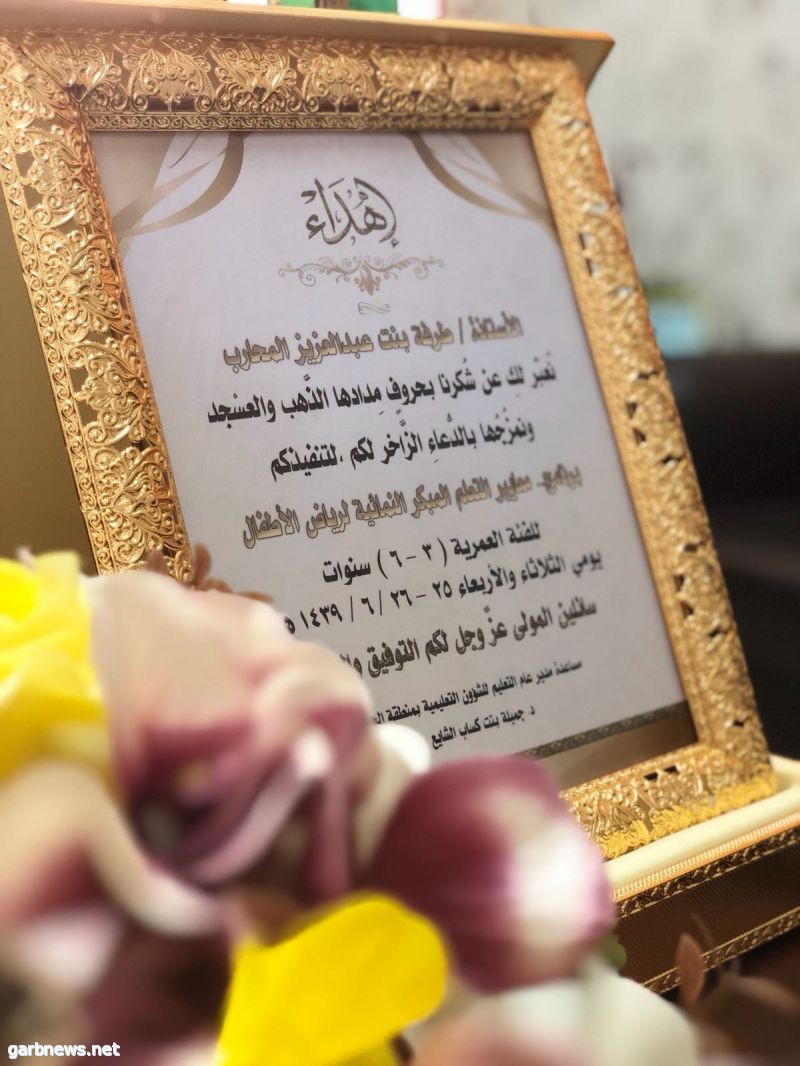 إهْدَاء
الأستاذة / طرفة بنت عبدالعزيز المحارب
نُعَبّر لكِ عن شُكرنا بحروفٍ مِدادها الذَّهب والعسْجد
ونمزْجُها بالدُّعاءِ الزَّاخر لكم ،لتنفيذكم
برنامج. معايير التعلم المبكر النمائية لرياض الأطفال
للفئة العمرية ( ٣ - ٦ ) سنوات
يومي الثلاثاء والأربعاء ٢٥ - ٢٦ / ٦ / ١٤٣٩ ه
سائلين المولى عزَّ وجل لكم التوفيق
مساعدة مدير عام التعليم للشؤون التعليمية بمنطقة
د. جميلة بنت كساب الشايع
garbnews.net